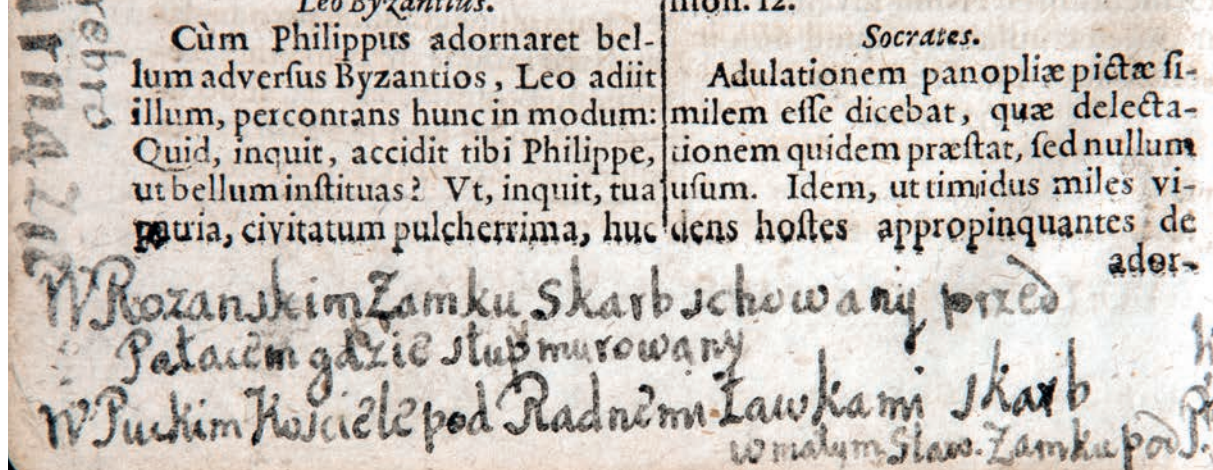 Leo Byzantius.
Cùm Philippus adornaret bel-
lum adverſus Byzantios, Leo adiit
illum, percontans hunc in modum:
Quid, inquit, accidit tibi Philippe,
ut bellum inſtituas? Vt, inquit, tua
patria, civitatum pulcherrima, huc
mon. 12.
Socrates.
Adulationem panopliæ pictæ ſi-
milem eſſe dicebat, quæ delecta-
tionem quidem præſtat, ſed nullum
uſum. Idem, ut timidus miles vi-
dens hoſtes appropinquantes de
ador-
W Rozanskim Zamku skarb schowany przed
Pałacem gdzie słup murowany
W Puckim Kosciele pod Radnemi Ławkami skarb
w małym Sław. Zamku pod